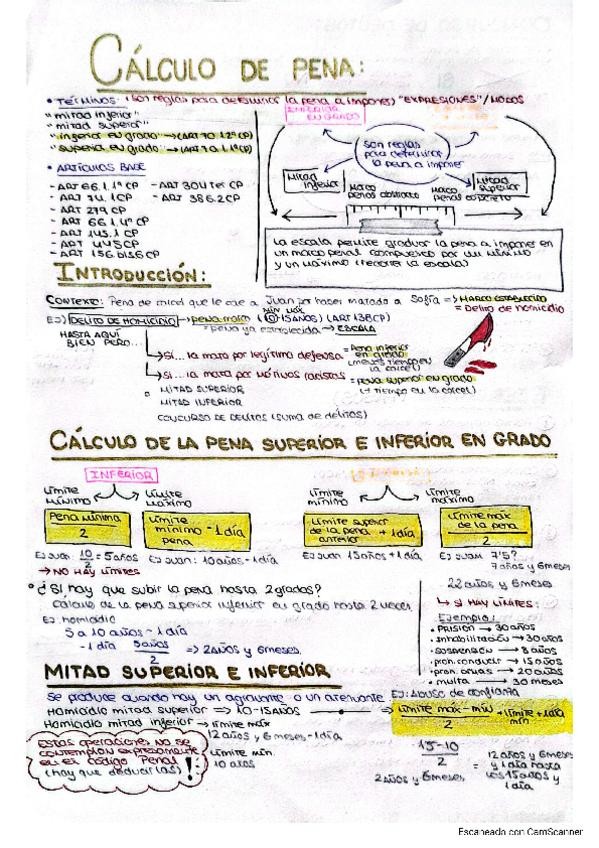 CÁLCULO DE PENA:
• TÉRMINOS: Son reglas para determinar la pena a imponer / "EXPRESIONES" / MODOS
"mitad inferior"
"mitad superior"
"inferior en grado" → (ART 70.1.2º CP)
"superior en grado" → (ART 70.1.1º CP)
INFERIOR
EN GRADO
Son reglas
para determinar
la pena a imponer
Mitad
inferior
Marco
penal abstracto
Marco
penal concreto
Mitad
superior
La escala permite graduar la pena a imponer en
un marco penal compuesto por un mínimo
y un máximo (recorrer la escala)
• ARTÍCULOS BASE
- ART 66.1.1º CP - ART 304 Ter CP
- ART 74.1 CP - ART 386.2 CP
- ART 279 CP
- ART 66.1.4º CP
- ART 145.1 CP
- ART 445 CP
- ART 156 bis 6 CP
INTRODUCCIÓN:
CONTEXTO: Pena de cárcel que le cae a Juan por haber matado a Sofía => MARCO ESTABLECIDO
= Delito de homicidio
MÍN MÁX
EJ) DELITO DE HOMICIDIO → pena marco (10-15 AÑOS) (ART 138 CP)
= pena ya establecida → ESCALA
HASTA AQUÍ
BIEN PERO...
→ Si... la mata por legítima defensa = Pena inferior
en grado
(menos tiempo en
la cárcel)
→ Si... la mata por motivos racistas = pena superior en grado
(+ tiempo en la cárcel)
MITAD SUPERIOR
MITAD INFERIOR
CONCURSO DE DELITOS (suma de delitos)
CÁLCULO DE LA PENA SUPERIOR E INFERIOR EN GRADO
INFERIOR
Límite
mínimo
Límite
máximo
Pena mínima
2
Límite
mínimo - 1 día
pena
EJ Juan: 10/2 = 5 años
EJ Juan: 10 años - 1 día
→ NO HAY LÍMITES
Límite
mínimo
Límite
máximo
Límite superior
de la pena + 1 día
anterior
Límite máx
de la pena
2
EJ Juan 15 años + 1 día
EJ Juan 7'5?
7 años y 6 meses
22 años y 6 meses
→ SI HAY LÍMITES:
Ejemplo:
• PRISIÓN → 30 años
• Inhabilitación → 30 años
• SUSPENSIÓN → 8 años
• pron. conducir → 15 años
• pron. armas → 20 años
• multa → 30 meses
• ¿Si hay que subir la pena hasta 2 grados?
Cálculo de la pena superior inferior en grado hasta 2 veces
EJ: homicidio
5 a 10 años - 1 día
- 1 día 5 años/2 => 2 años y 6 meses
MITAD SUPERIOR E INFERIOR
Se produce cuando hay un agravante o un atenuante EJ: Abuso de confianza
Homicidio mitad superior => 10-15 AÑOS
Límite máx - mín
2
+ límite + 1 día
mín
Homicidio mitad inferior → límite máx
12 años y 6 meses - 1 día
límite mín.
10 años
15-10
2
2 años y 6 meses
= 12 años y 6 meses
y 1 día hasta
los 15 años y
1 día
Estas operaciones no se
contemplan expresamente
en el Código Penal
(hay que deducirlas)!
Escaneado con CamScanner